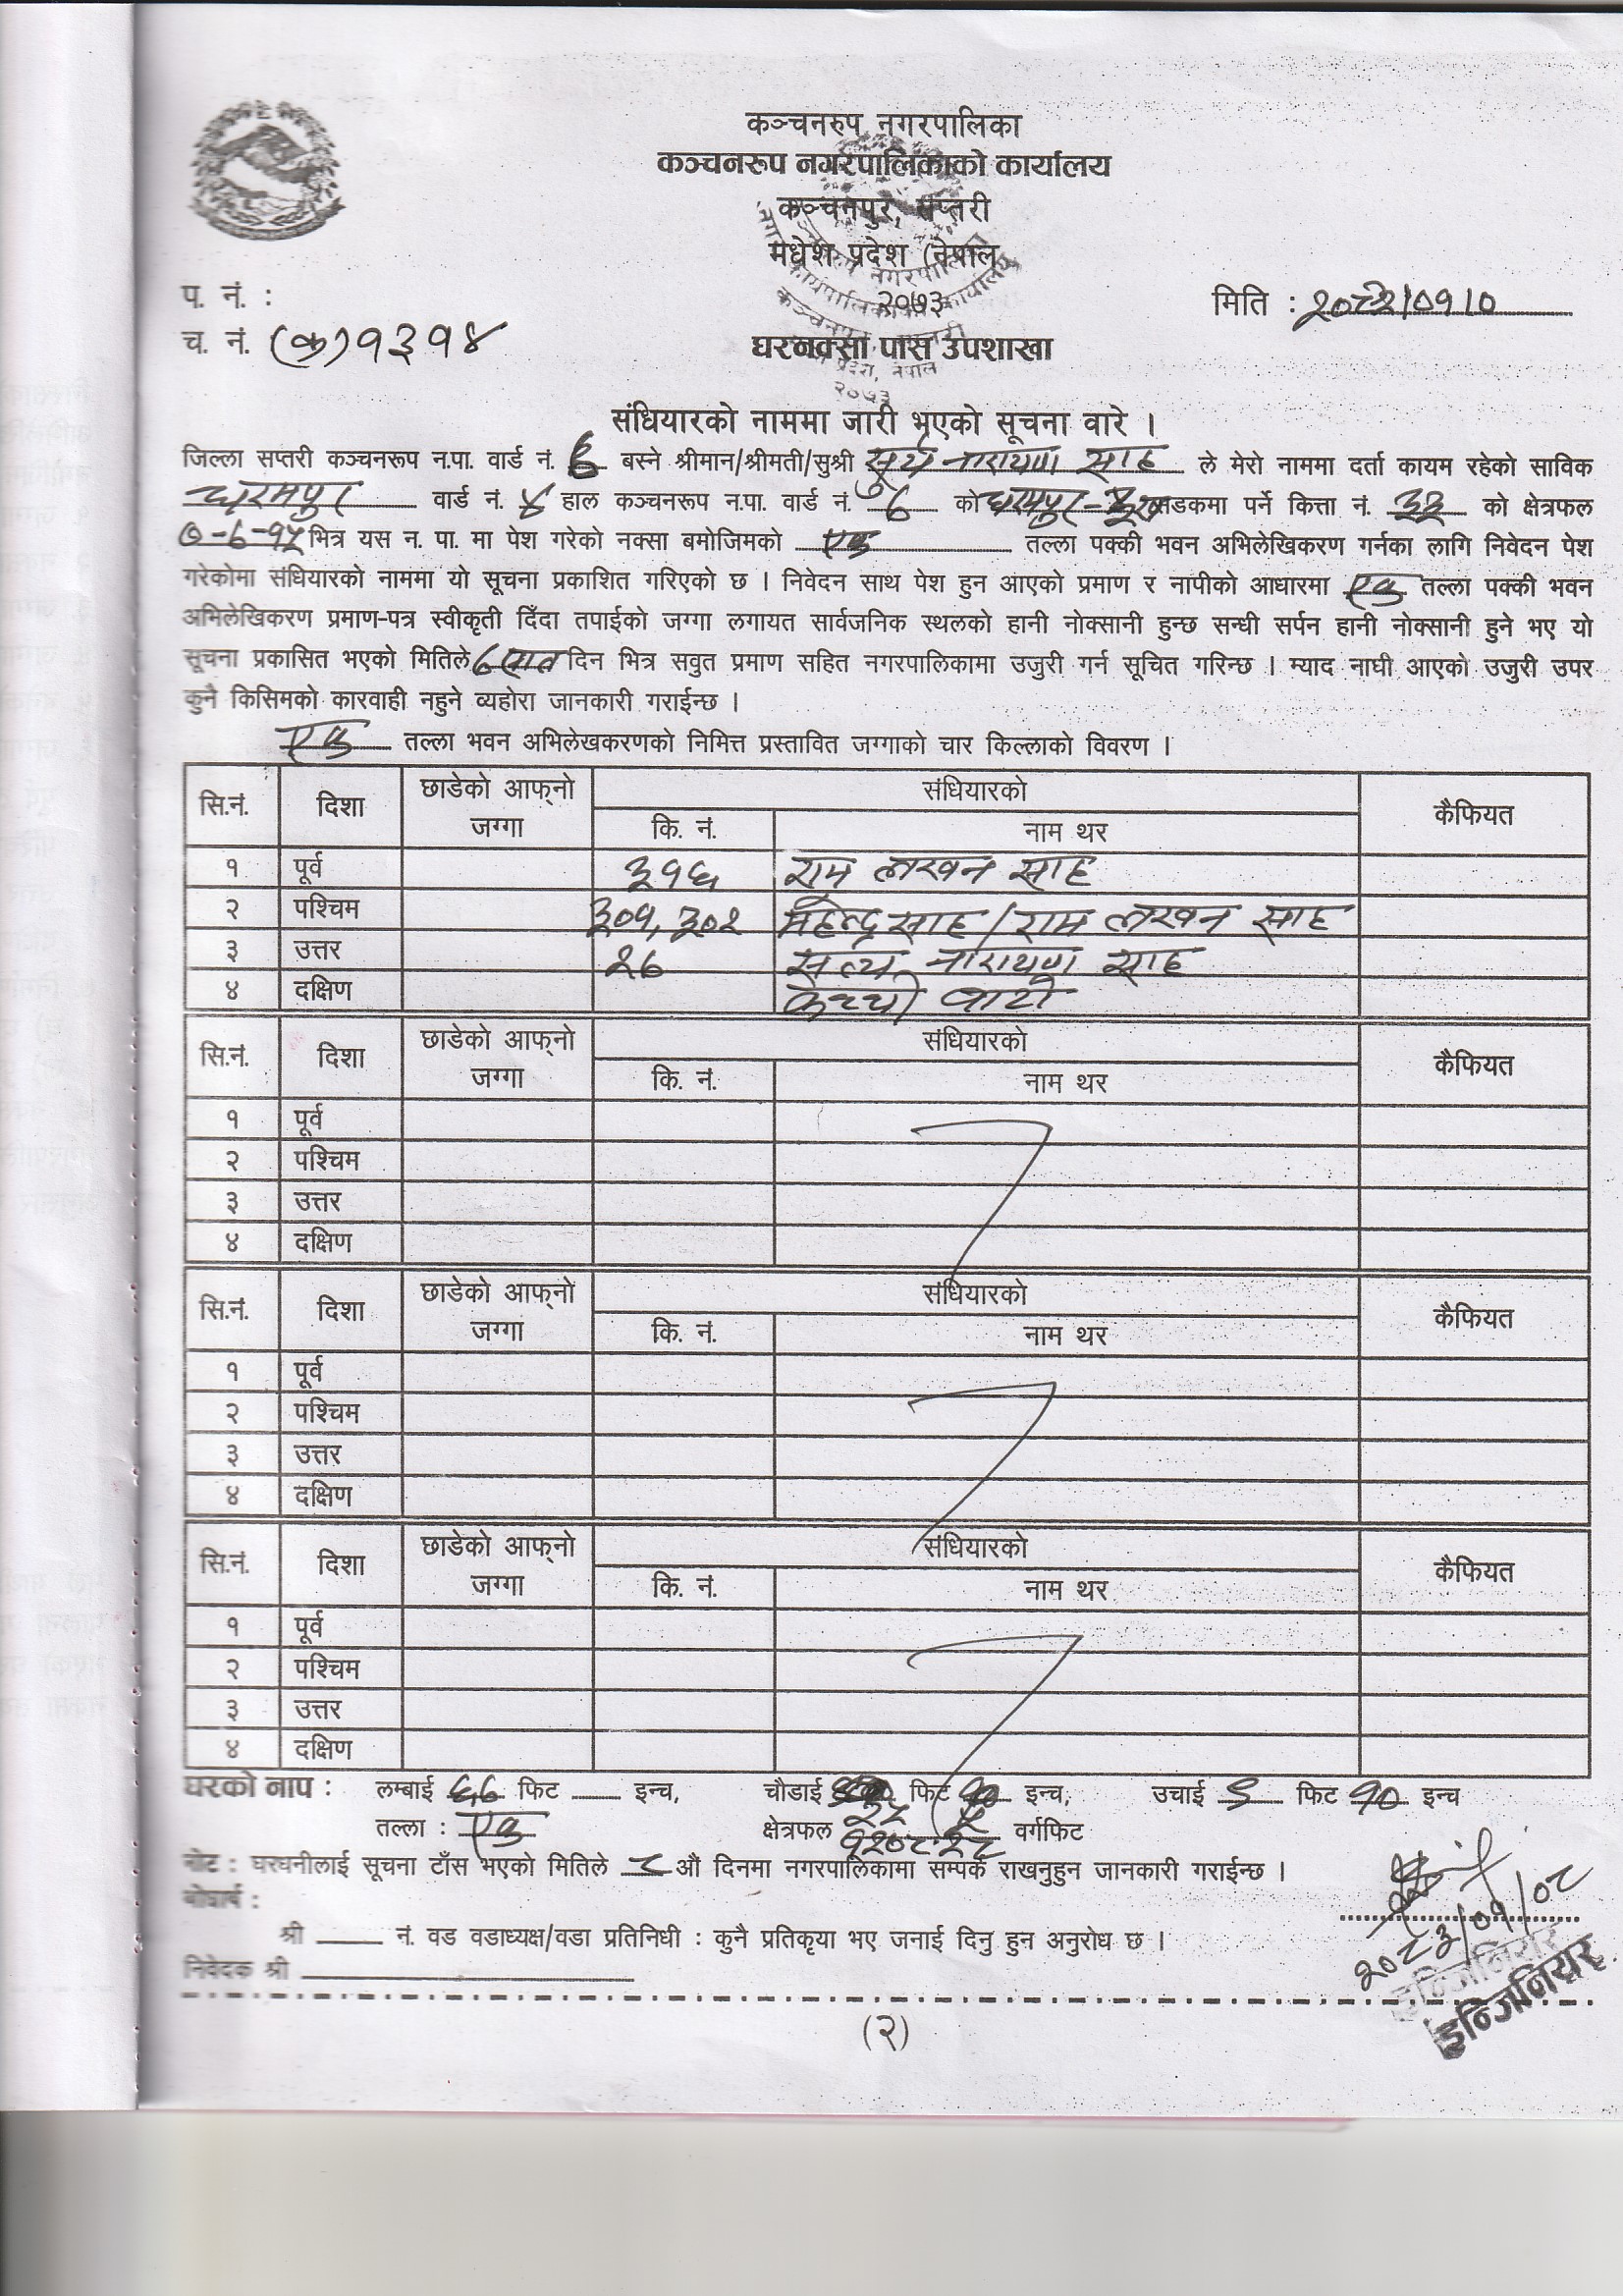 कञ्चनरुप नगरपालिका
कञ्चनरूप नगरपालिकाको कार्यालय
कञ्चनपुर, सप्तरी
मधेश प्रदेश (नेपाल
२०७३
प. नं. :
मिति :
च. नं. (क) १३१४
घरनक्सा पास उपशाखा
संधियारको नाममा जारी भएको सूचना वारे ।
जिल्ला सप्तरी कञ्चनरूप न.पा. वार्ड नं. बस्ने श्रीमान/श्रीमती/सुश्री सूर्य नारायण साह ले मेरो नाममा दर्ता कायम रहेको साविक
धरमपुर वार्ड नं. ४ हाल कञ्चनरूप न.पा. वार्ड नं. ७ को धरमपुर सडकमा पर्ने कित्ता नं. ३३ को क्षेत्रफल
०-७-१५ भित्र यस न. पा. मा पेश गरेको नक्सा बमोजिमको एक तल्ला पक्की भवन अभिलेखिकरण गर्नका लागि निवेदन पेश
गरेकोमा संधियारको नाममा यो सूचना प्रकाशित गरिएको छ । निवेदन साथ पेश हुन आएको प्रमाण र नापीको आधारमा एक तल्ला पक्की भवन
अभिलेखिकरण प्रमाण-पत्र स्वीकृती दिँदा तपाईको जग्गा लगायत सार्वजनिक स्थलको हानी नोक्सानी हुन्छ सन्धी सर्पन हानी नोक्सानी हुने भए यो
सूचना प्रकासित भएको मितिले ७ सात दिन भित्र सवुत प्रमाण सहित नगरपालिकामा उजुरी गर्न सूचित गरिन्छ । म्याद नाघी आएको उजुरी उपर
कुनै किसिमको कारवाही नहुने व्यहोरा जानकारी गराईन्छ ।
एक तल्ला भवन अभिलेखकरणको निमित्त प्रस्तावित जग्गाको चार किल्लाको विवरण ।
सि.नं. दिशा छाडेको आफ्नो जग्गा संधियारको कैफियत
कि. नं. नाम थर
१ पूर्व ३१६ राम लखन साह
२ पश्चिम ३०१, ३०२ महेन्द्र साह / राम लखन साह
३ उत्तर २७ सत्य नारायण साह
४ दक्षिण कच्ची बाटो
सि.नं. दिशा छाडेको आफ्नो जग्गा संधियारको कैफियत
कि. नं. नाम थर
१ पूर्व
२ पश्चिम
३ उत्तर
४ दक्षिण
सि.नं. दिशा छाडेको आफ्नो जग्गा संधियारको कैफियत
कि. नं. नाम थर
१ पूर्व
२ पश्चिम
३ उत्तर
४ दक्षिण
सि.नं. दिशा छाडेको आफ्नो जग्गा संधियारको कैफियत
कि. नं. नाम थर
१ पूर्व
२ पश्चिम
३ उत्तर
४ दक्षिण
घरको नाप : लम्बाई फिट इन्च, चौडाई फिट इन्च, उचाई ९ फिट १० इन्च
तल्ला : एक क्षेत्रफल १२०८.२८ वर्गफिट
नोट : घरघनीलाई सूचना टाँस भएको मितिले ८ औं दिनमा नगरपालिकामा सम्पर्क राखनुहुन जानकारी गराईन्छ ।
बोधार्थ :
श्री नं. वड वडाध्यक्ष/वडा प्रतिनिधी : कुनै प्रतिकृया भए जनाई दिनु हुन अनुरोध छ ।
२०८३/०१/०८
निवेदक श्री
इन्जिनियर
(२)